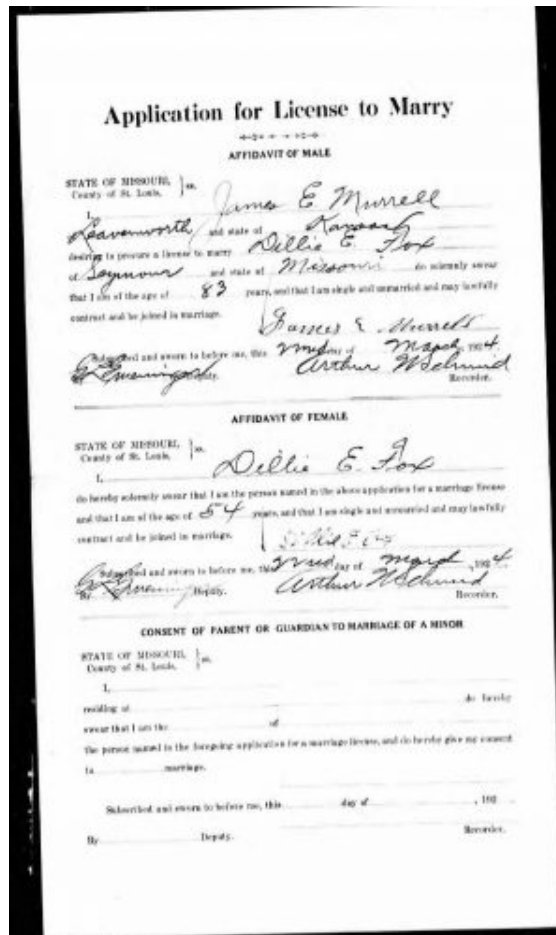 Application for License to Marry
AFFIDAVIT OF MALE
STATE OF MISSOURI, } ss.
County of St. Louis,
I, James E Murrell
Leavenworth and state of Kansas
desiring to procure a license to marry Dillie E. Fox
of Seymour and state of Missouri do solemnly swear
that I am of the age of 83 years, and that I am single and unmarried and may lawfully
contract and be joined in marriage.
James E. Murrell
Subscribed and sworn to before me, this 22nd day of March, 1924
Deputy. Arthur W Schmid
Recorder.
AFFIDAVIT OF FEMALE
STATE OF MISSOURI, } ss.
County of St. Louis,
I, Dillie E. Fox
do hereby solemnly swear that I am the person named in the above application for a marriage license
and that I am of the age of 54 years, and that I am single and unmarried and may lawfully
contract and be joined in marriage.
Subscribed and sworn to before me, this 22nd day of March, 1924
By Deputy. Arthur W Schmid
Recorder.
CONSENT OF PARENT OR GUARDIAN TO MARRIAGE OF A MINOR
STATE OF MISSOURI, } ss.
County of St. Louis,
I,
residing at do hereby
swear that I am the of
the person named in the foregoing application for a marriage license, and do hereby give my consent
to marriage.
Subscribed and sworn to before me, this day of , 192
By Deputy. Recorder.